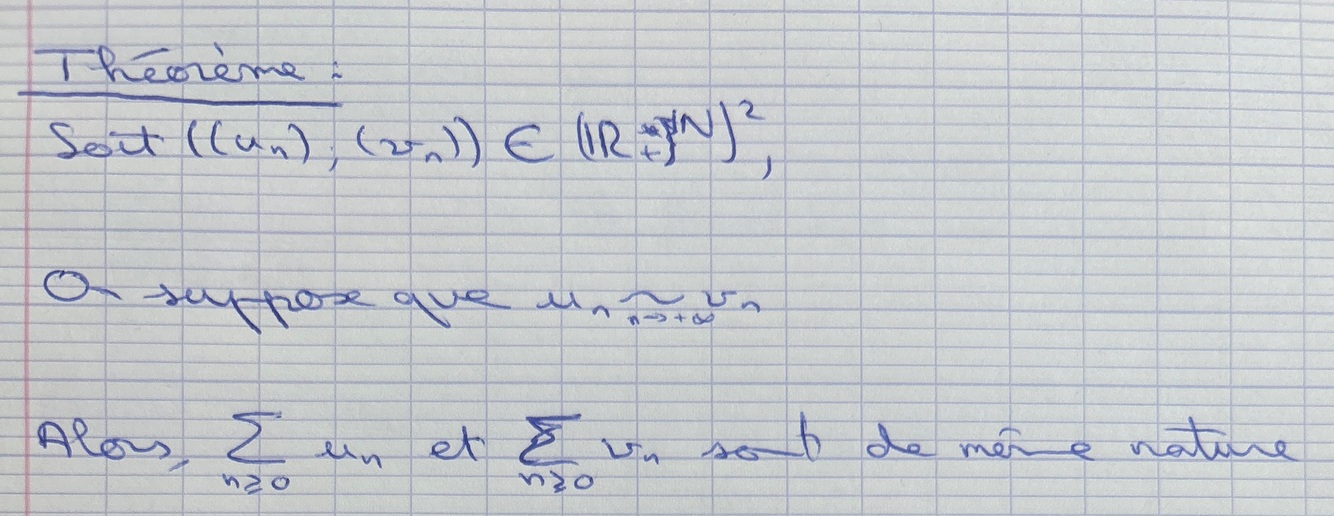 Théorème :
Soit ((uₙ), (vₙ)) ∈ (ℝ₊ᴺ)²,
On suppose que uₙ ~ₙ→₊∞ vₙ
Alors, ∑ₙ≥₀ uₙ et ∑ₙ≥₀ vₙ sont de même nature